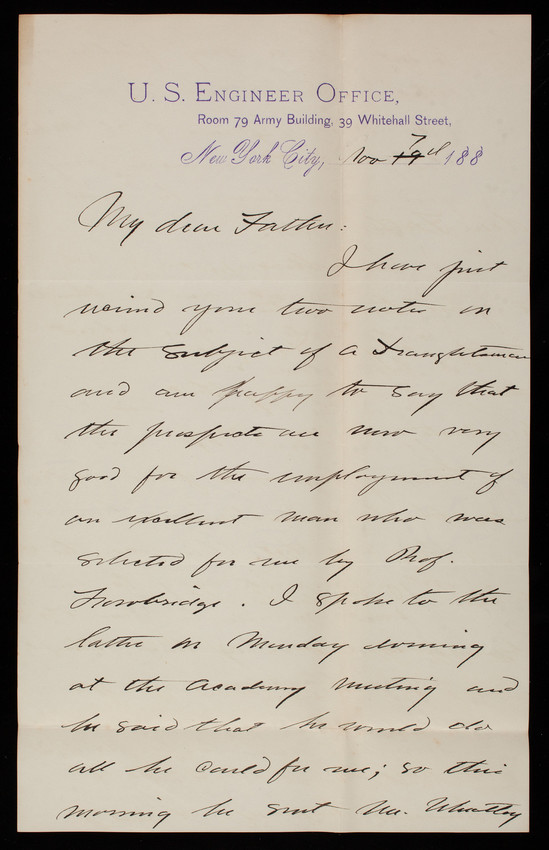 U. S. ENGINEER OFFICE,
Room 79 Army Building, 39 Whitehall Street,
New York City, Nov 7th 188
My dear Father:
I have just
received your two notes on
the subject of a Draughtsman
and am happy to say that
the prospects are now very
good for the employment of
an excellent man who was
selected for me by Prof.
Trowbridge. I spoke to the
latter on Monday evening
at the Academy meeting and
he said that he would do
all he could for me; so this
morning he sent Mr.